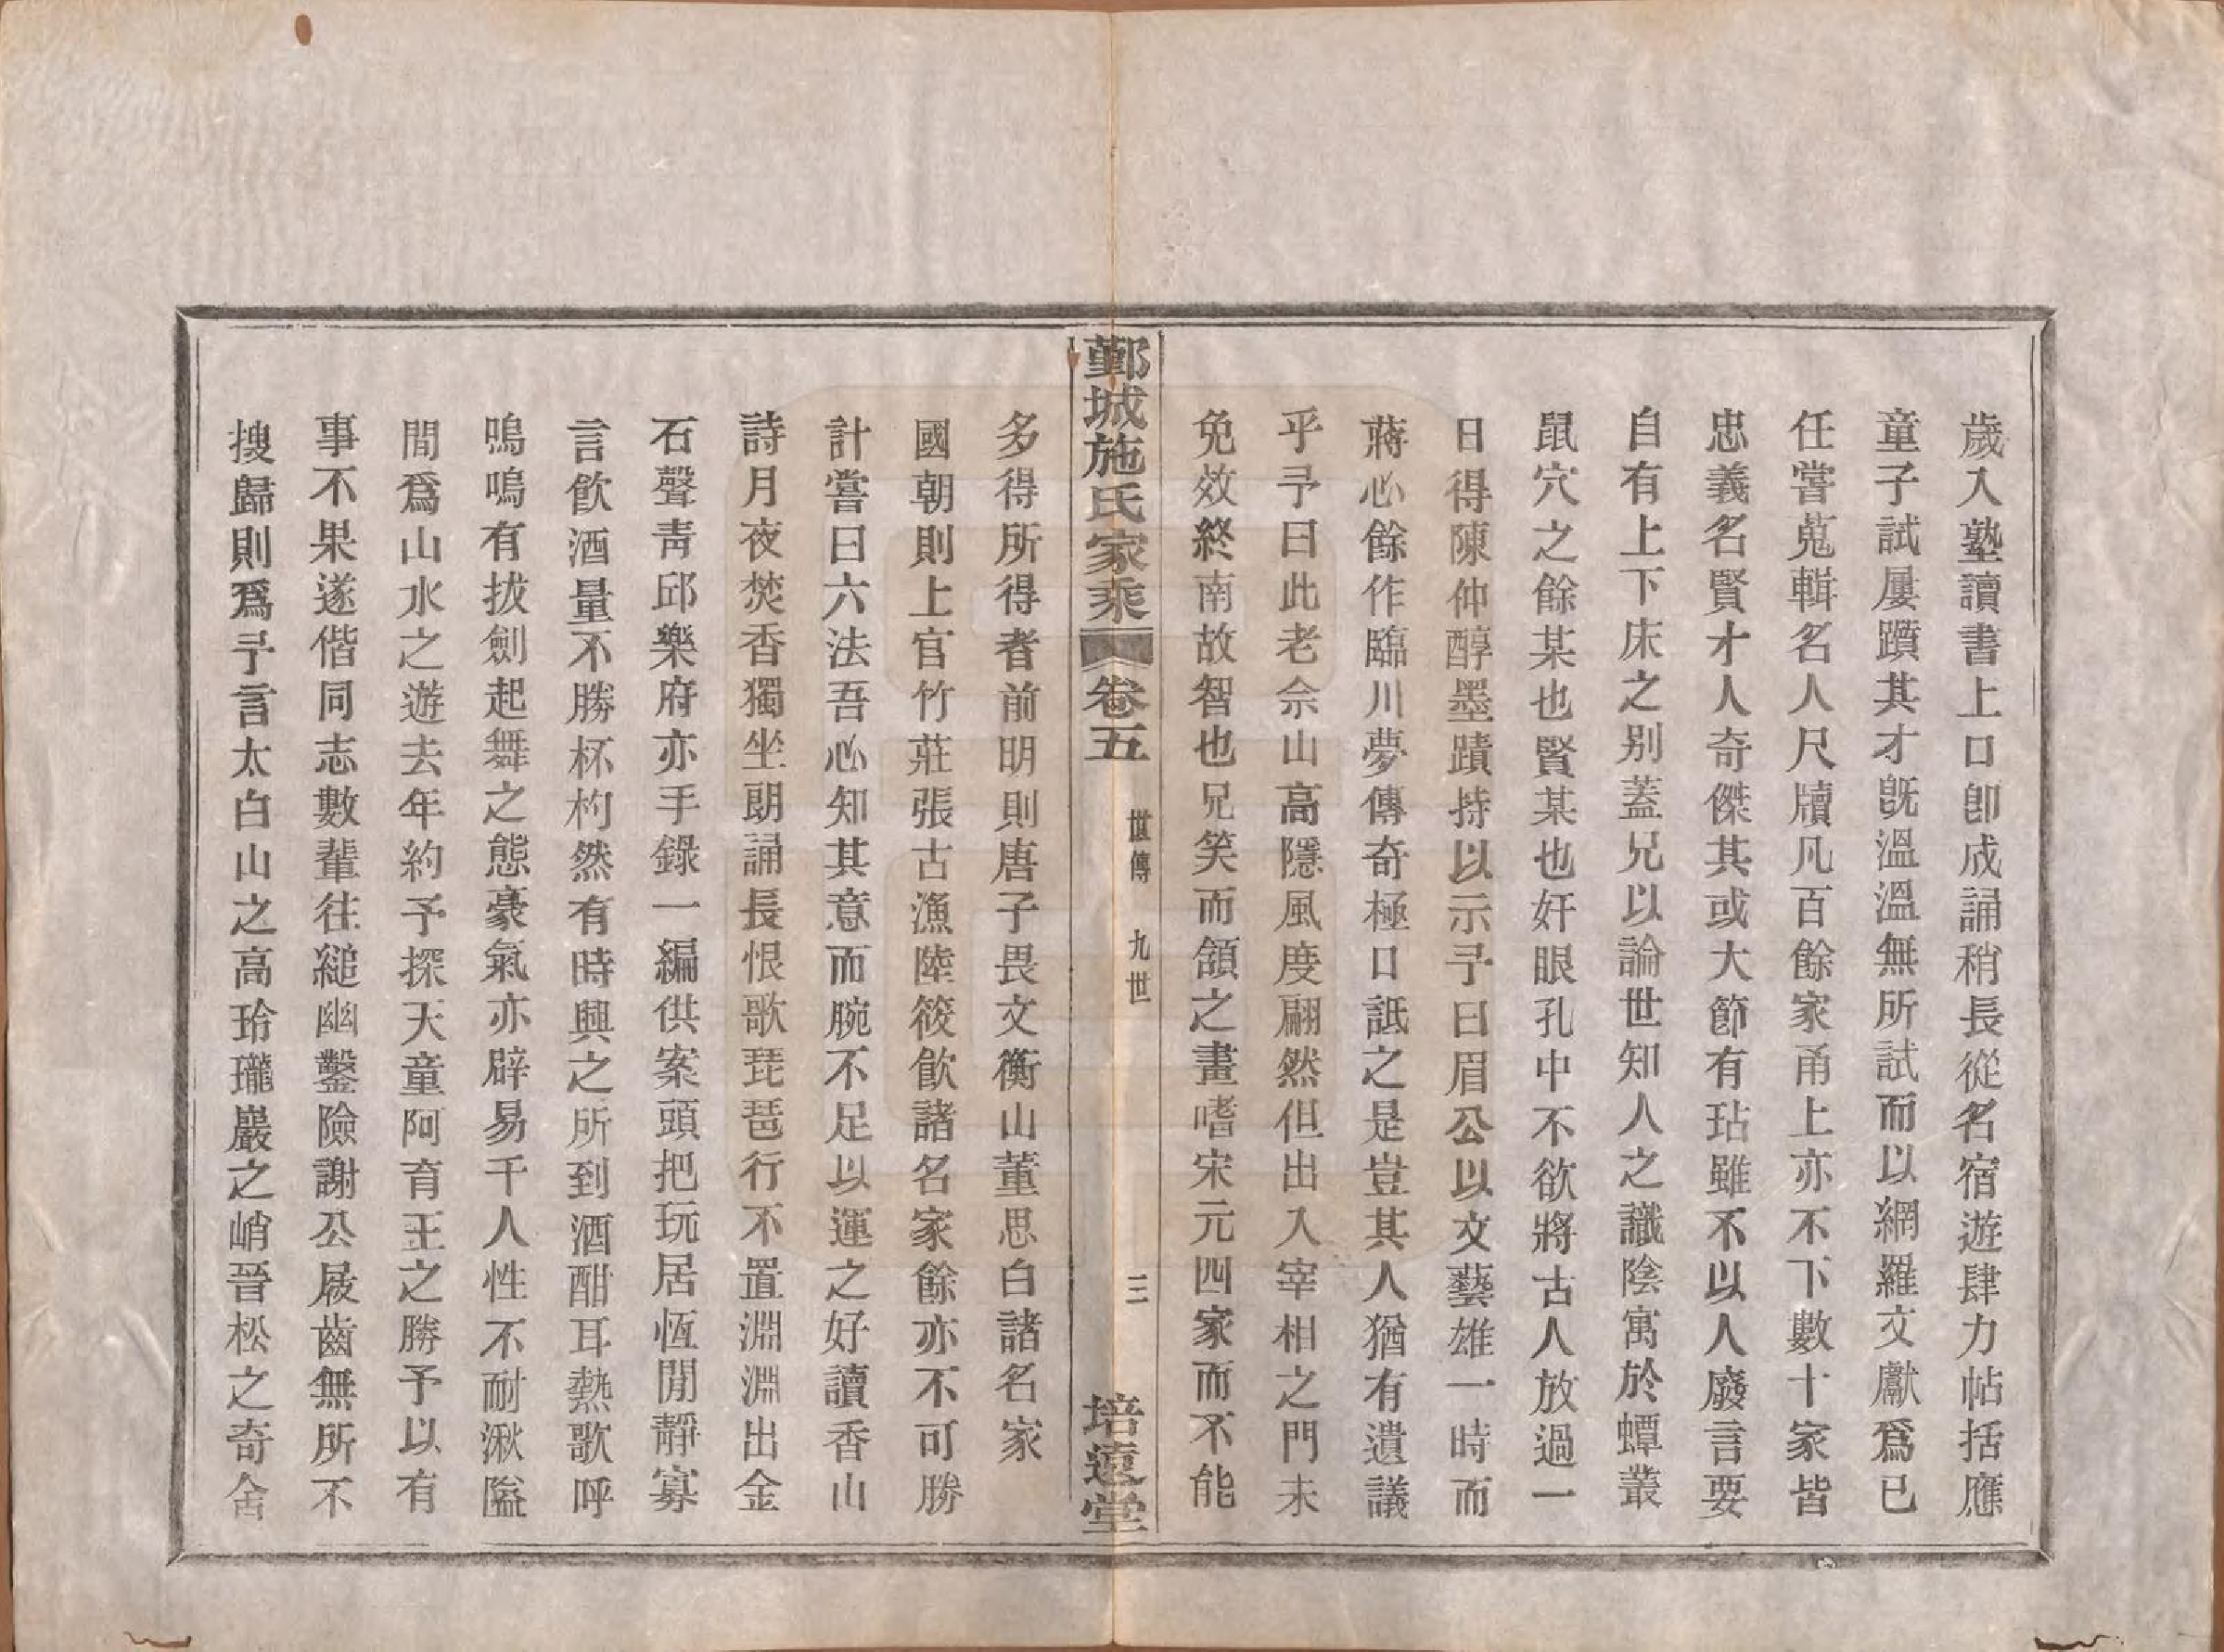 歲入塾讀書上口卽成誦稍長從名宿遊肆力帖括應
童子試屢躓其才旣溫溫無所試而以網羅文獻爲已
任嘗蒐輯名人尺牘凡百餘家甬上亦不下數十家皆
忠義名賢才人奇傑其或大節有玷雖不以人廢言要
自有上下床之別蓋兄以論世知人之識陰寓於蟫叢
鼠穴之餘某也賢某也奸眼孔中不欲將古人放過一
日得陳仲醇墨蹟持以示予曰眉公以文藝雄一時而
蔣心餘作臨川夢傳奇極口詆之是豈其人猶有遺議
乎予曰此老佘山高隱風度翩然但出入宰相之門未
免效終南故智也兄笑而頷之畫嗜宋元四家而不能
鄞城施氏家乘
卷五
世傳 九世
三
培遠堂
多得所得者前明則唐子畏文衡山董思白諸名家
國朝則上官竹莊張古漁陸筱飮諸名家餘亦不可勝
計嘗曰六法吾心知其意而腕不足以運之好讀香山
詩月夜焚香獨坐朗誦長恨歌琵琶行不置淵淵出金
石聲靑邱樂府亦手錄一編供案頭把玩居恆閒靜寡
言飮酒量不勝杯杓然有時興之所到酒酣耳熱歌呼
嗚嗚有拔劍起舞之態豪氣亦辟易千人性不耐湫隘
間爲山水之遊去年約予探天童阿育王之勝予以有
事不果遂偕同志數輩往縋幽鑿險謝公屐齒無所不
搜歸則爲予言太白山之高玲瓏巖之峭晉松之奇舍